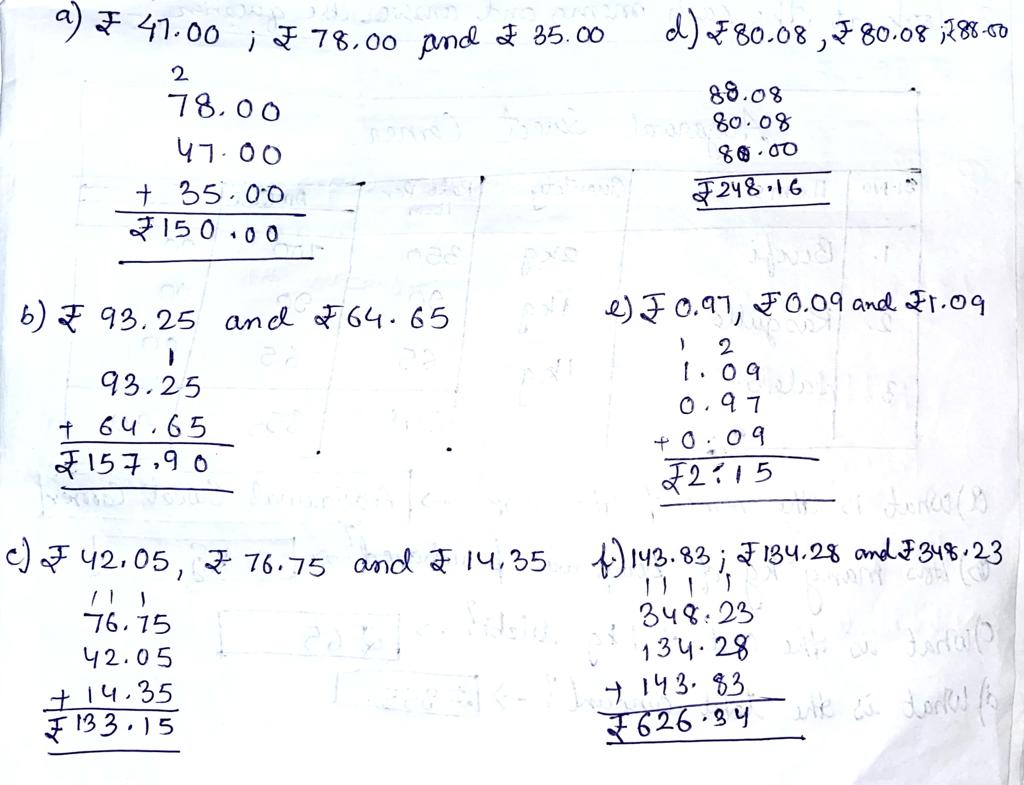 a) ₹ 47.00 ; ₹ 78.00 and ₹ 35.00
2
78.00
47.00
+ 35.00
₹150.00
b) ₹ 93.25 and ₹64.65
1
93.25
+ 64.65
₹157.90
c) ₹ 42.05, ₹ 76.75 and ₹ 14.35
1 1 1
76.75
42.05
+ 14.35
₹133.15
d) ₹80.08, ₹80.08, ₹88.00
88.08
80.08
80.00
₹248.16
e) ₹ 0.97, ₹0.09 and ₹1.09
1 2
1.09
0.97
+ 0.09
₹2.15
f.) 143.83; ₹134.28 and ₹348.23
1 1 1 1
348.23
134.28
+ 143.83
₹626.34